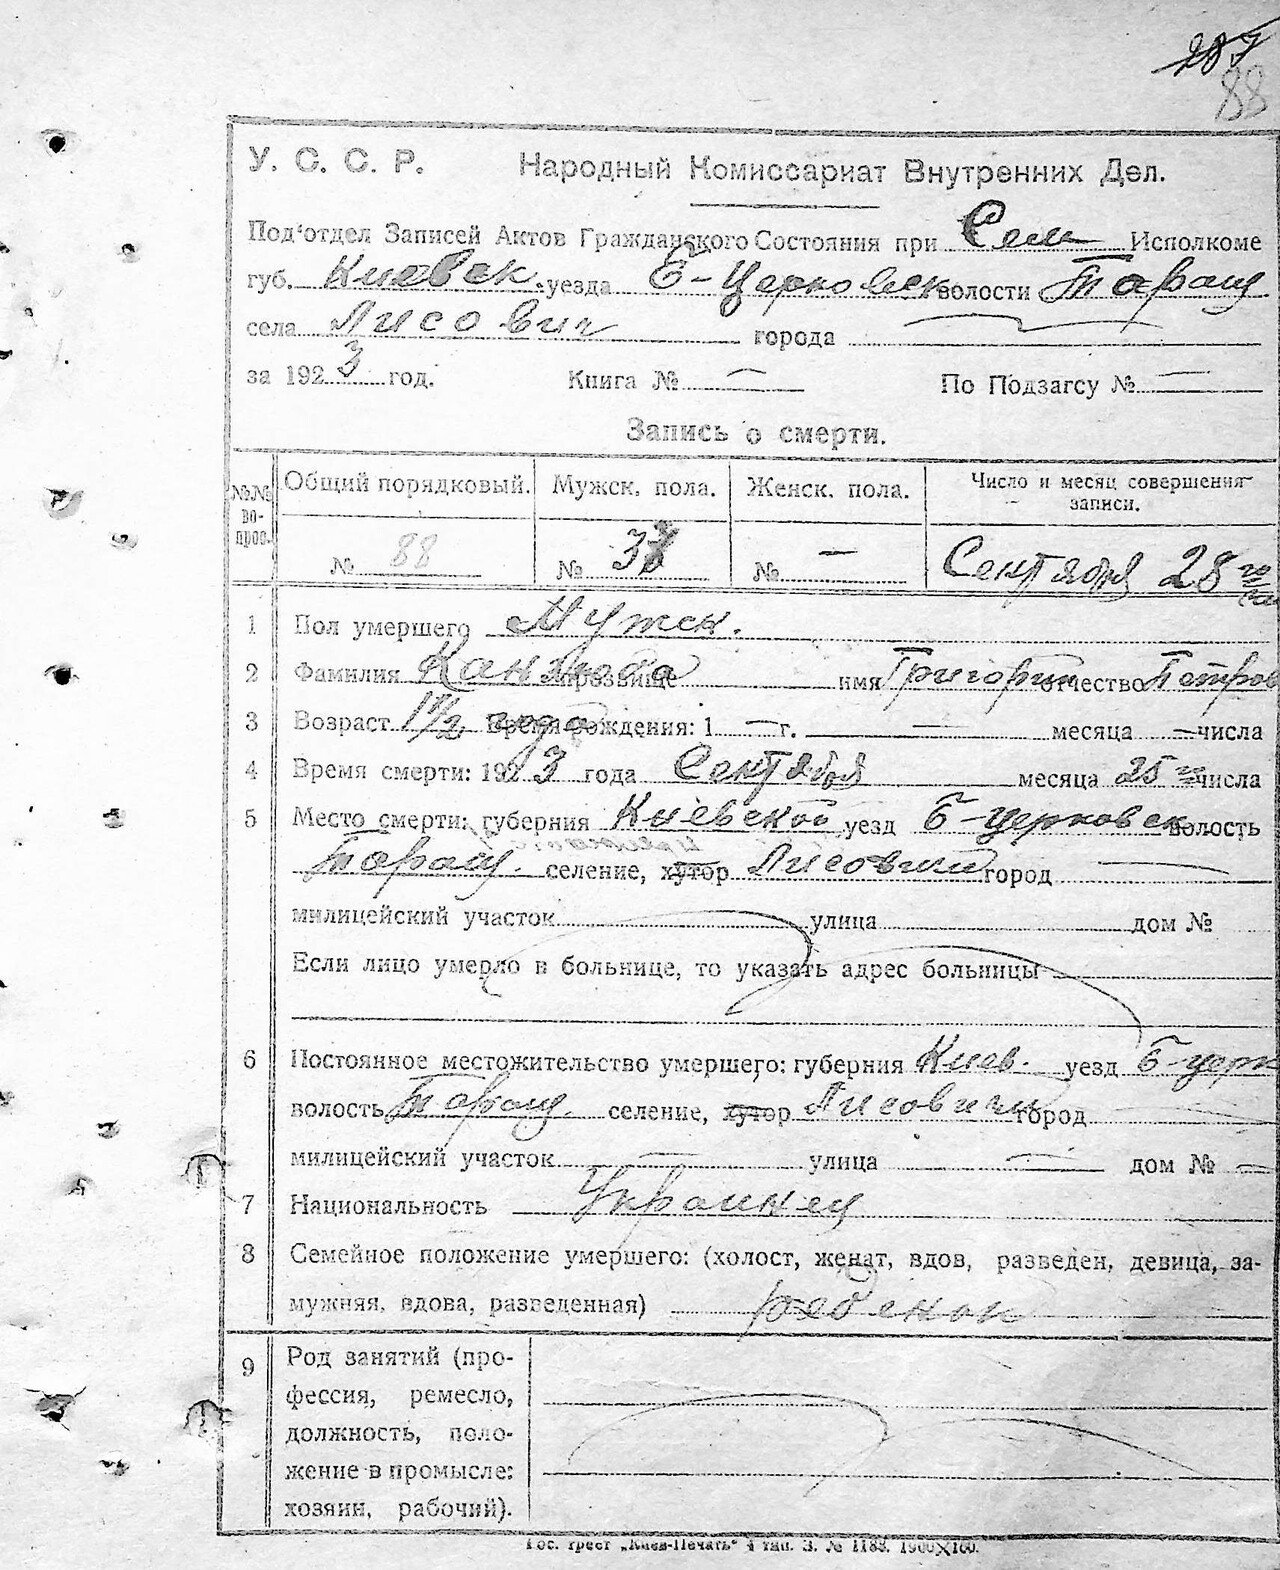 207
88
У. С. С. Р. Народный Комиссариат Внутренних Дел.
Под'отдел Записей Актов Гражданского Состояния при Сель Исполкоме
губ. Киевск. уезда Б-Церковск волости Таращ
села Лисович города —
за 1923 год. Книга № — По Подзагсу № —
Запись о смерти.
№№ вопрос. Общий порядковый. Мужск. пола. Женск. пола. Число и месяц совершения записи.
№ 88 № № — Сентября 28 го
1 Пол умершего Мужск.
2 Фамилия прозвище имя Григорий отчество Петров
3 Возраст 1 1/2 года Время рождения: 1 — г. — месяца — числа
4 Время смерти: 1923 года Сентября месяца 25 го числа
5 Место смерти: губерния Киевской уезд Б-Церковск волость
Таращ. селение, хутор Лисовичи город —
милицейский участок улица дом №
Если лицо умерло в больнице, то указать адрес больницы
6 Постоянное местожительство умершего: губерния Киев. уезд Б-церк
волость Таращ. селение, хутор Лисовичи город —
милицейский участок — улица — дом № —
7 Национальность Украинец
8 Семейное положение умершего: (холост, женат, вдов, разведен, девица, за-
мужняя, вдова, разведенная) ребенок
9 Род занятий (про-
фессия, ремесло,
должность, поло-
жение в промысле:
хозяин, рабочий).
Гос. трест „Киев-Печать" 4 тип. З. № 1188.